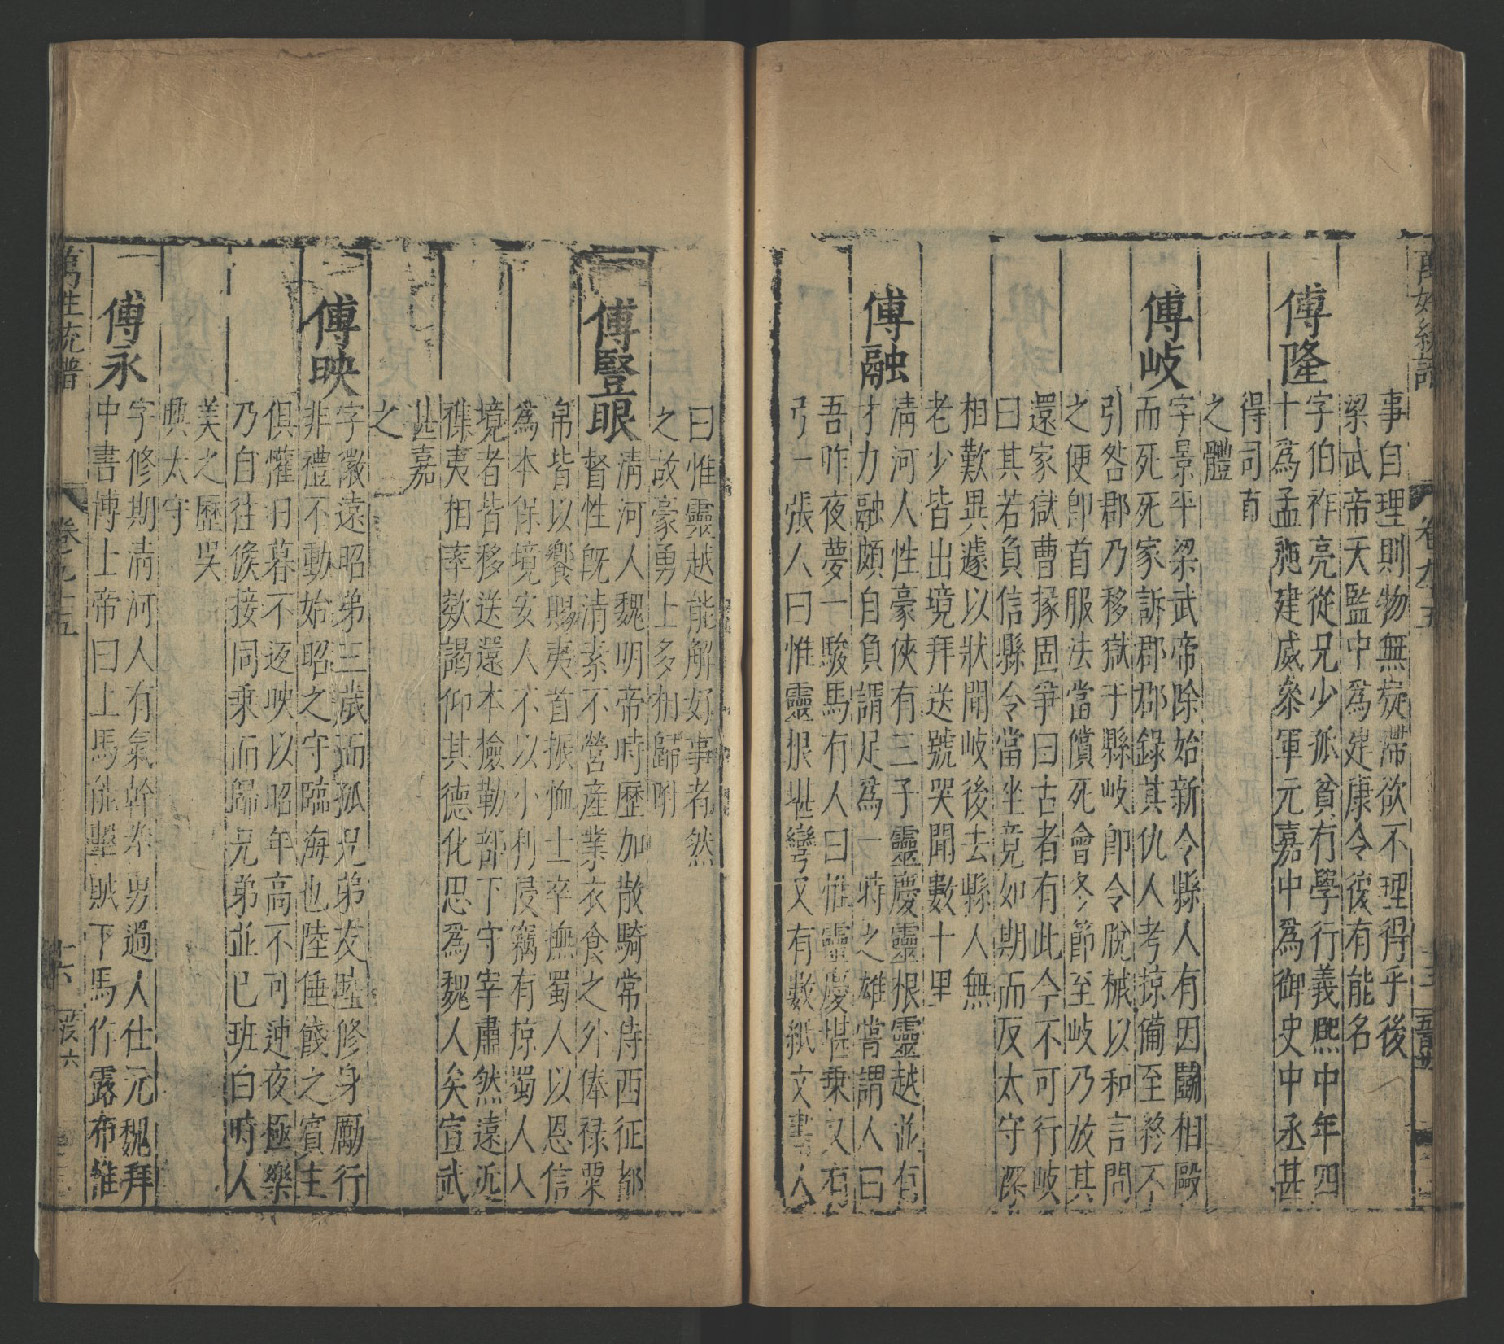 萬姓統譜
卷九十五
事自理則物無疑滯欲不理得乎後
梁武帝天監中為建康令復有能名
傅隆
字伯祚亮從兄少孤貧有學行義熙中年四
十為孟昶建威參軍元嘉中為御史中丞甚
得司直
之體
傅岐
字景平梁武帝除始新令縣人有因鬭相毆
而死死家訴郡郡錄其仇人考掠備至終不
引咎郡乃移獄于縣岐即令脫械以和言問
之便即首服法當償死會冬節至岐乃放其
還家獄曹掾固爭曰古者有此今不可行岐
曰其若負信縣令當坐竟如期而反太守深
相歎異遽以狀聞岐後去縣人無
老少皆出境拜送號哭聞數十里
傅融
清河人性豪俠有三子靈慶靈根靈越並有
才力融頗自負謂足為一時之雄嘗謂人曰
吾昨夜夢一駿馬有人曰惟靈慶堪乗又有
弓一張人曰惟靈根堪彎又有數紙文書人
曰惟靈越能解好事者然
之故豪勇士多相歸附
傅豎眼
清河人魏明帝時歷加散騎常侍西征都
督性既清素不營産業衣食之外俸祿粟
帛皆以饗賜夷首振恤士卒撫蜀人以恩信
為本保境安人不以小利侵竊有掠蜀人人
境者皆移送還本檢勒部下守宰肅然遠近
雜夷相率欵謁仰其德化思為魏人矣宣武
甚嘉
之
傅映
字徽遠昭弟三歲而孤兄弟友睦修身勵行
非禮不動始昭之守臨海也陸倕餞之賓主
俱懽日暮不返映以昭年高不可連夜極樂
乃自往候接同乗而歸兄弟並已班白時人
美之歷吳
興太守
傅永
字修期清河人有氣幹拳勇過人仕元魏拜
中書博士帝曰上馬能擊賊下馬作露布惟
萬姓統譜
卷九十五
十六